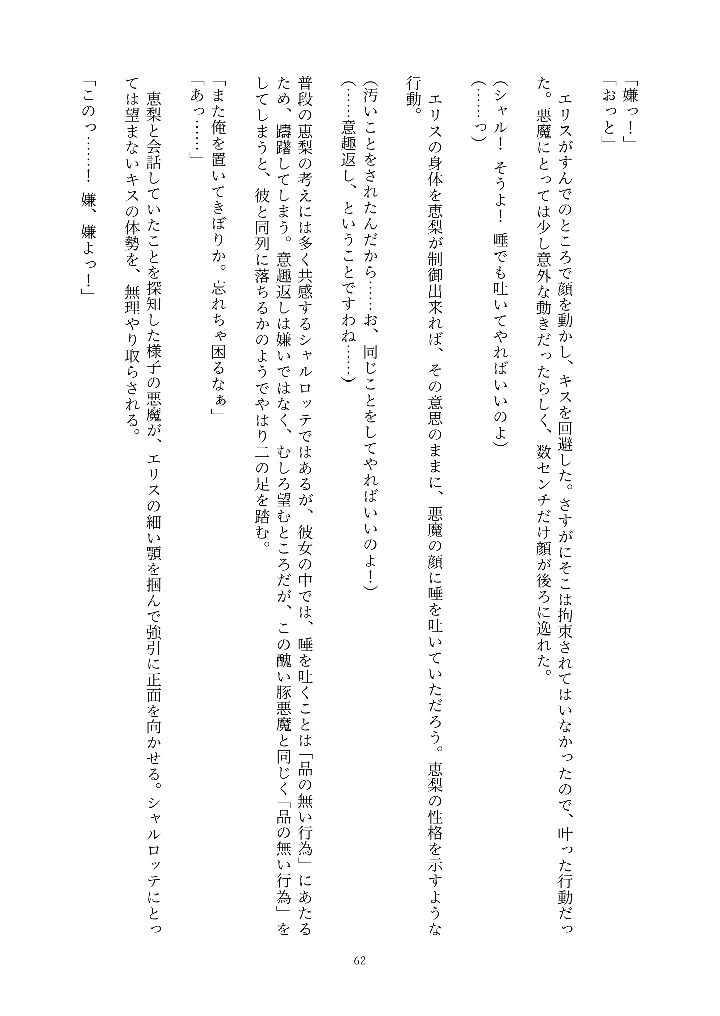 「嫌っ！」
「おっと」
　エリスがすんでのところで顔を動かし、キスを回避した。さすがにそこは拘束されてはいなかったので、叶った行動だっ
た。悪魔にとっては少し意外な動きだったらしく、数センチだけ顔が後ろに逸れた。
（シャル！　そうよ！　唾でも吐いてやればいいのよ）
（……っ）
　エリスの身体を恵梨が制御出来れば、その意思のままに、悪魔の顔に唾を吐いていただろう。恵梨の性格を示すような
行動。
（汚いことをされたんだから……お、同じことをしてやればいいのよ！）
（……意趣返し、ということですわね……）
普段の恵梨の考えには多く共感するシャルロッテではあるが、彼女の中では、唾を吐くことは「品の無い行為」にあたる
ため、躊躇してしまう。意趣返しは嫌いではなく、むしろ望むところだが、この醜い豚悪魔と同じく「品の無い行為」を
してしまうと、彼と同列に落ちるかのようでやはり二の足を踏む。
「また俺を置いてきぼりか。忘れちゃ困るなぁ」
「あっ……」
　恵梨と会話していたことを探知した様子の悪魔が、エリスの細い顎を掴んで強引に正面を向かせる。シャルロッテにとっ
ては望まないキスの体勢を、無理やり取らされる。
「このっ……！　嫌、嫌よっ！」
62